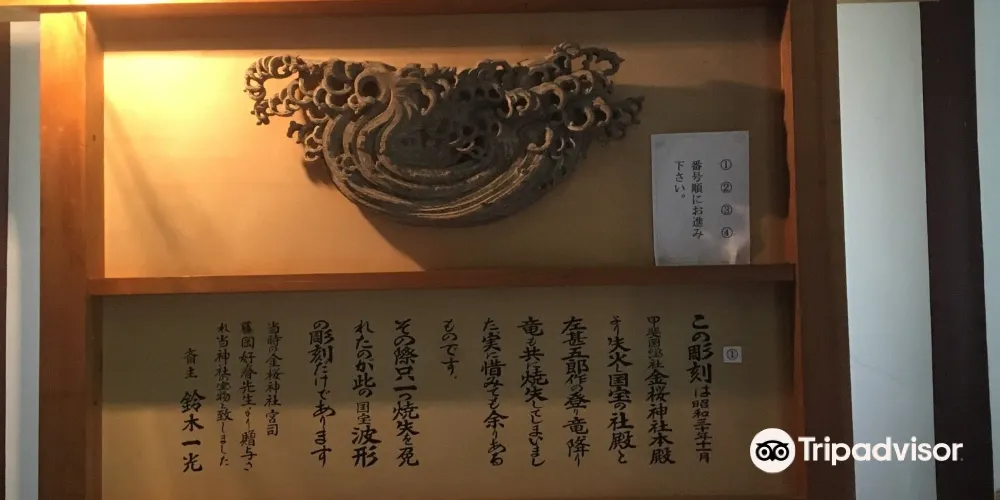 ① ② ③ ④
番号順にお進み
下さい。
①
この彫刻は昭和三十年十二月
甲斐国総社金桜神社本殿
より失火し国宝の社殿と
左甚五郎作の登り竜降り
竜も共に焼失してしまいまし
た実に惜みても余りある
ものです。
その際只一つ焼失を免
れたのが此の国宝波形
の彫刻だけであります
当時の金桜神社宮司
先生より贈与さ
れ当神社宝物と致しました
斎主 鈴木一光
Tripadvisor